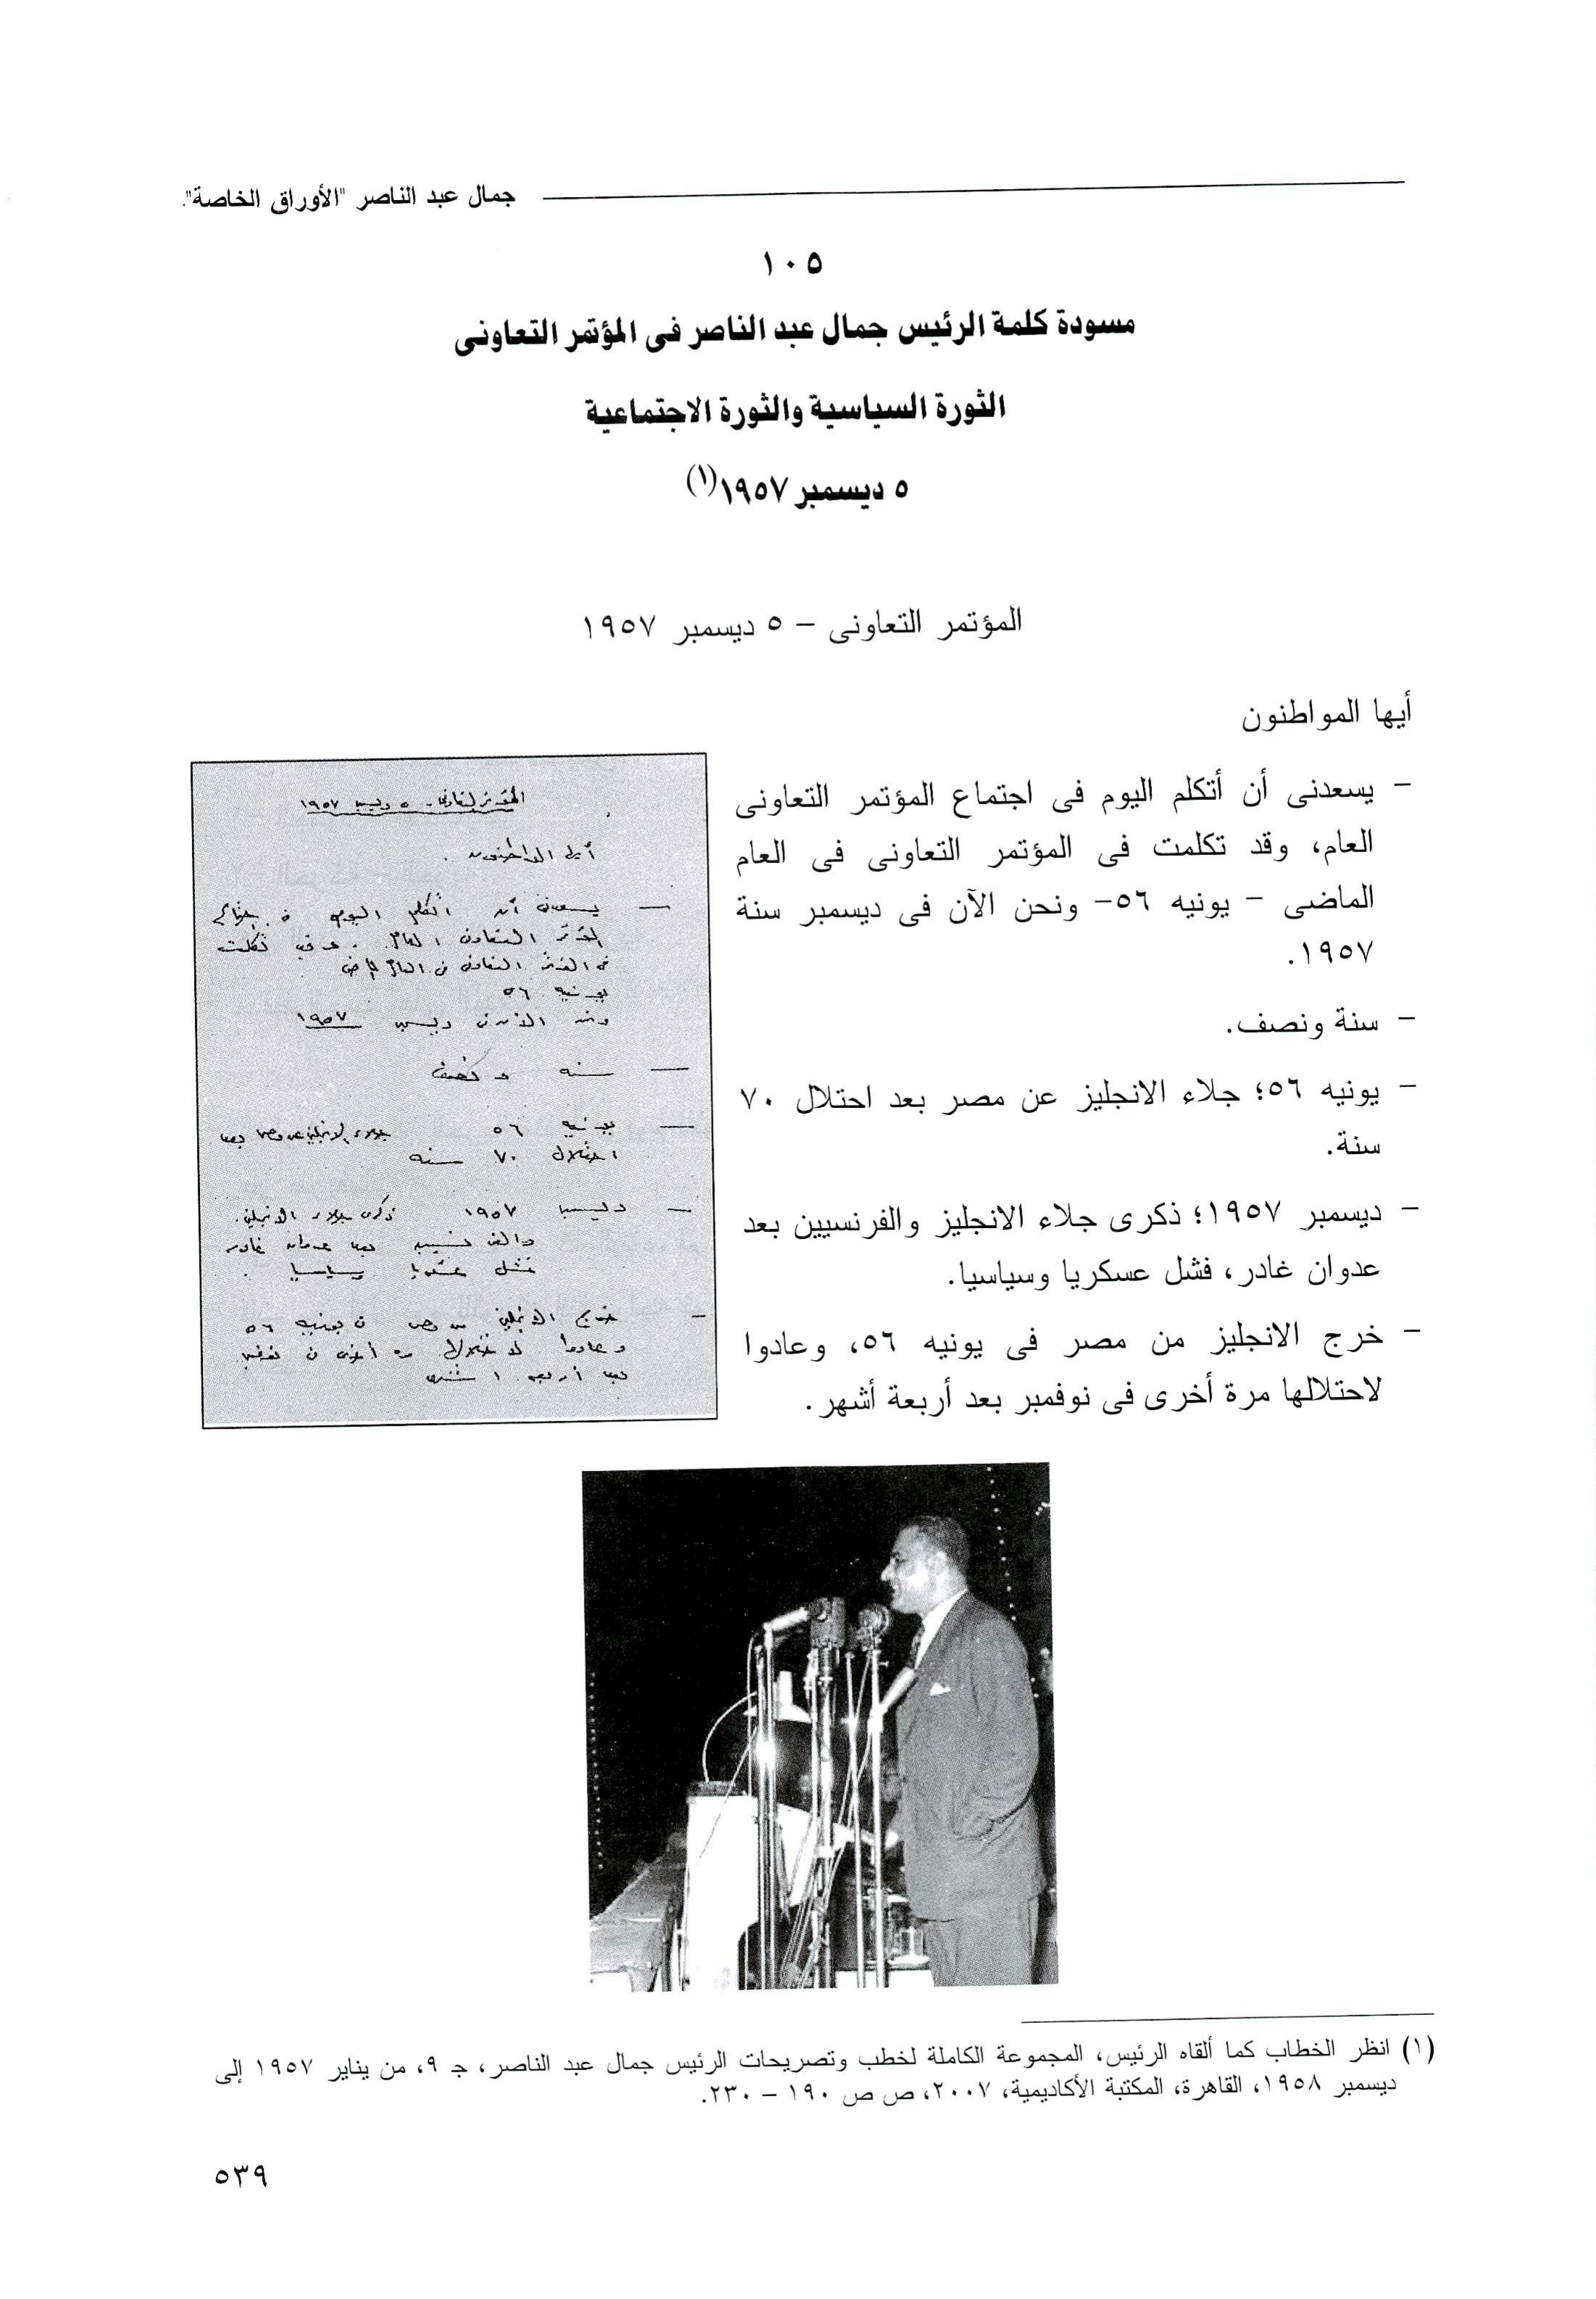 جمال عبد الناصر "الأوراق الخاصة".
١٠٥
مسودة كلمة الرئيس جمال عبد الناصر فى المؤتمر التعاونى
الثورة السياسية والثورة الاجتماعية
٥ ديسمبر ١٩٥٧(١)
المؤتمر التعاونى – ٥ ديسمبر ١٩٥٧
أيها المواطنون
– يسعدنى أن أتكلم اليوم فى اجتماع المؤتمر التعاونى
العام، وقد تكلمت فى المؤتمر التعاونى فى العام
الماضى – يونيه ٥٦– ونحن الآن فى ديسمبر سنة
١٩٥٧.
– سنة ونصف.
– يونيه ٥٦؛ جلاء الانجليز عن مصر بعد احتلال ٧٠
سنة.
– ديسمبر ١٩٥٧؛ ذكرى جلاء الانجليز والفرنسيين بعد
عدوان غادر، فشل عسكريا وسياسيا.
– خرج الانجليز من مصر فى يونيه ٥٦، وعادوا
لاحتلالها مرة أخرى فى نوفمبر بعد أربعة أشهر.
المؤتمر التعاونى – ٥ ديسمبر ١٩٥٧
أيها المواطنون .
— يسعدنى أن أتكلم اليوم فى اجتماع
المؤتمر التعاونى العام . وقد تكلمت
فى المؤتمر التعاونى فى العام الماضى
يونيه ٥٦
ونحن الآن فى ديسمبر ١٩٥٧
— سنه ونصف
— يونيه ٥٦ جلاء الانجليز عن مصر بعد
احتلال ٧٠ سنه
— ديسمبر ١٩٥٧ ذكرى جلاء الانجليز
والفرنسيين بعد عدوان غادر
فشل عسكريا وسياسيا .
– خرج الانجليز من مصر فى يونيه ٥٦
وعادوا لاحتلالها مرة أخرى فى نوفمبر
بعد أربعة اشهر
(١) انظر الخطاب كما ألقاه الرئيس، المجموعة الكاملة لخطب وتصريحات الرئيس جمال عبد الناصر، جـ ٩، من يناير ١٩٥٧ إلى
ديسمبر ١٩٥٨، القاهرة، المكتبة الأكاديمية، ٢٠٠٧، ص ص ١٩٠ – ٢٣٠.
٥٣٩